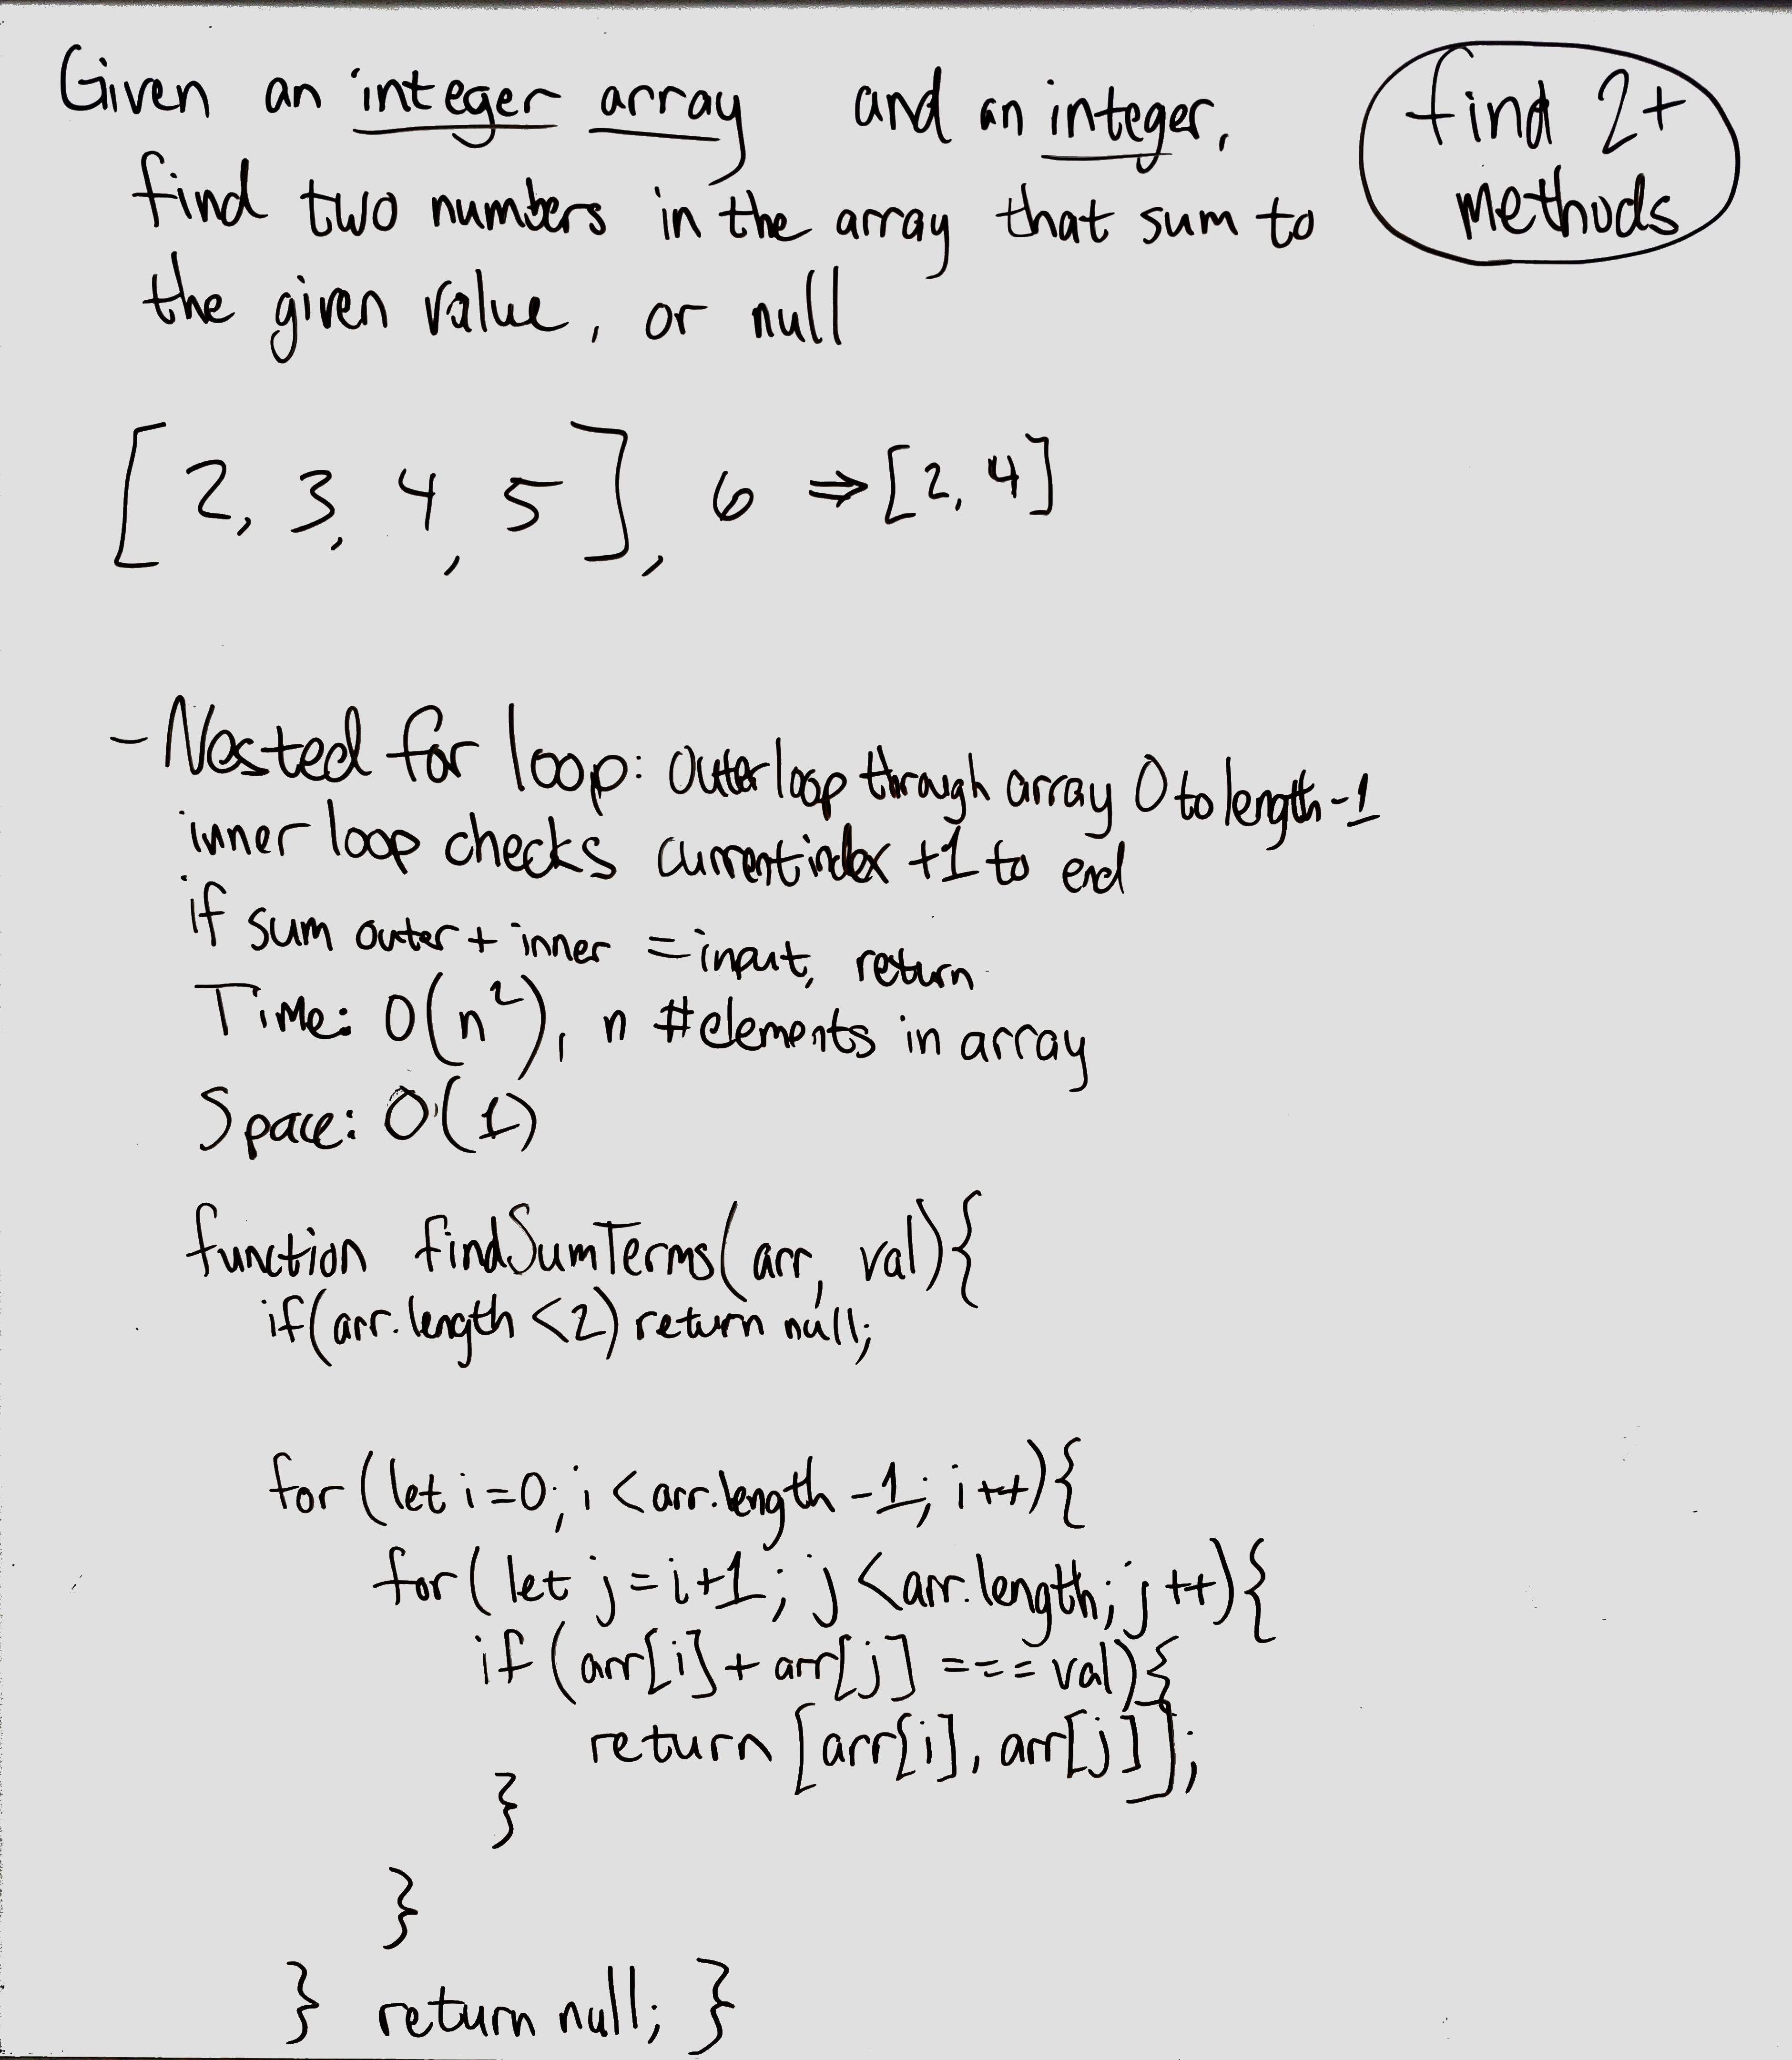 Given an integer array and an integer,
find two numbers in the array that sum to
the given value, or null
find 2+
methods
[2, 3, 4, 5], 6 ⇒ [2, 4]
- Nested for loop: outer loop through array 0 to length-1
inner loop checks current index +1 to end
if sum outer + inner = input, return
Time: O(n²), n #elements in array
Space: O(1)
function findSumTerms(arr, val){
if(arr.length <2) return null;
for (let i=0; i < arr.length -1; i++){
for (let j=i+1; j <arr.length; j++){
if (arr[i] + arr[j] === val){
return [arr[i], arr[j]];
}
}
} return null; }